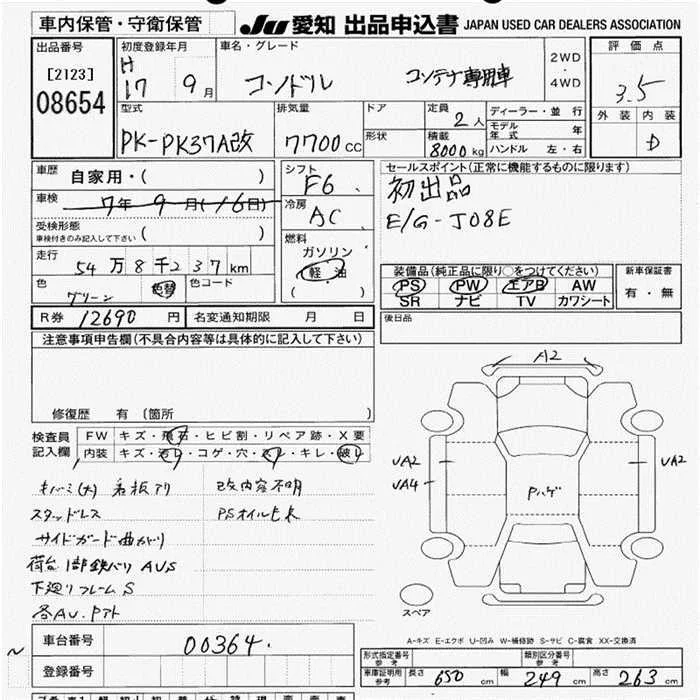 車内保管・守衛保管
JU 愛知 出品申込書 JAPAN USED CAR DEALERS ASSOCIATION
出品番号
[2123]
08654
初度登録年月
H
17 9月
車名・グレード
コンドル コンテナ専用車
2WD
・
4WD
評価点
3.5
外装 内装
D
型式
PK-PK37A改
排気量
7700cc
ドア
形状
定員
2人
積載
8000kg
ディーラー・並行
モデル
年式 年
ハンドル 左・右
車歴
自家用・( )
車検
7年 9月(16日)
受検形態
車検付きのみ記入して下さい ( )
走行
54万8千237km
色
グリーン
色替
色コード
シフト
F6
冷房
AC
燃料
ガソリン
軽油
( )
セールスポイント(正常に機能するものに限ります)
初出品
E/G-J08E
装備品(純正品に限り〇をつけてください)
PS PW エアB AW
SR ナビ TV カワシート
新車保証書
有・無
後日品
R券 12690円
名変通知期限 月 日
注意事項申告欄(不具合内容等は具体的に記入して下さい)
修復歴 有(箇所 )
検査員
記入欄
FW キズ・飛石・ヒビ割・リペア跡・X要
内装 キズ・汚レ・コゲ・穴・スレ・キレ・破レ
キハミ(大) 看板アリ 改内容不明
スタッドレス PSオイルモレ
サイドガード曲がり
荷台1部鉄バリ AUS
下廻りフレームS
各AU.Pアト
A2
UA2
UA4
UA2
Pハゲ
スペア
A-キズ E-エクボ U-凹み W-補修跡 S-サビ C-腐食 XX-交換済
車台番号
00364.
登録番号
形式指定番号
参考
類別区分番号
参考
車庫証明用
参考
長さ 650cm 幅 249cm 高さ 263cm